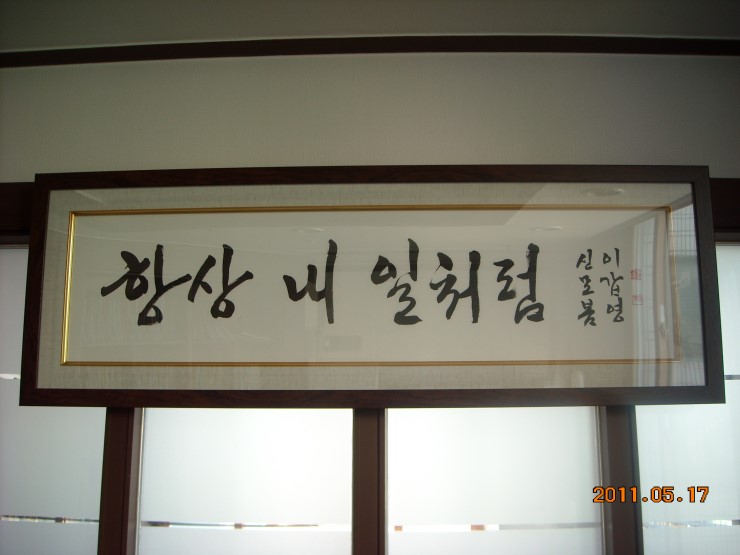 항상 내 일처럼
이갑영
신모봄
2011.05.17